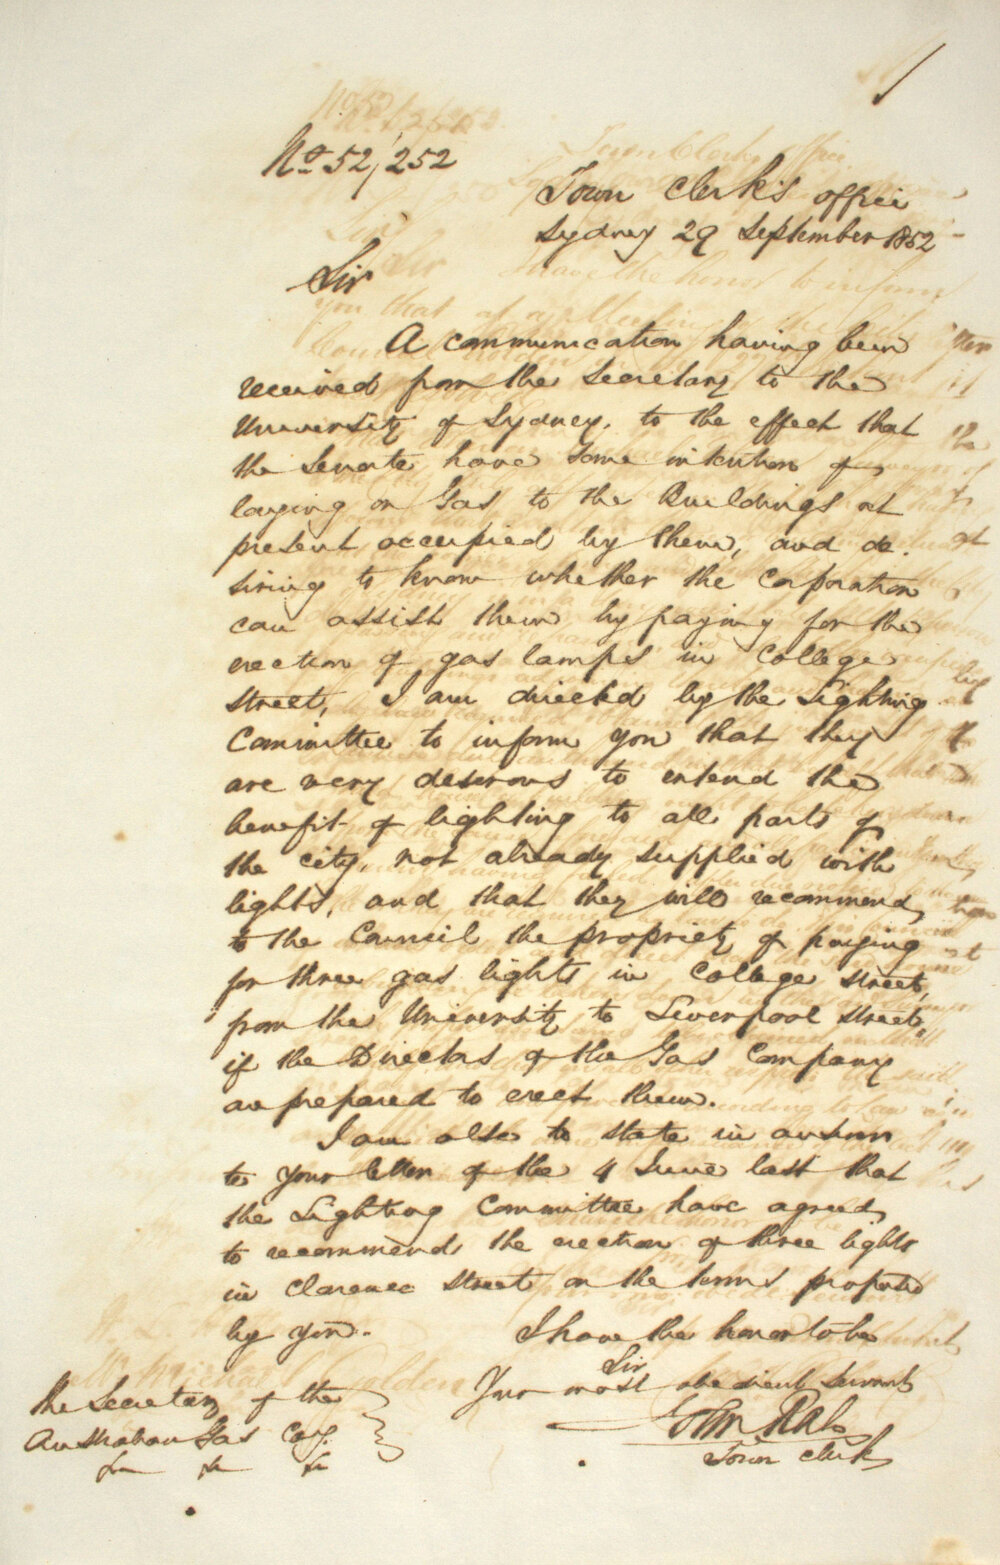 No 52/252
Town Clerk's office
Sydney 29 September 1852
Sir
A communication having been
received from the Secretary to the
University of Sydney, to the effect that
the Senate have some intention of
laying on Gas to the Buildings at
present occupied by them, and de-
siring to know whether the Corporation
can assist them by paying for the
erection of gas lamps in College
Street, I am directed by the Lighting
Committee to inform you that they
are very desirous to extend the
benefit of lighting to all parts of
the city, not already supplied with
lights, and that they will recommend
to the Council the propriety of paying
for three gas lights in College Street,
from the University to Liverpool Street,
if the Directors of the Gas Company
are prepared to erect them.
I am also to state in answer
to your letter of the 4 June last that
the Lighting Committee have agreed
to recommend the erection of three lights
in Clarence Street on the terms proposed
by you.
I have the honor to be
Sir
Your most obedient Servant
John Rae
Town Clerk
The Secretary of the
Australian Gas Coy.
&c &c &c